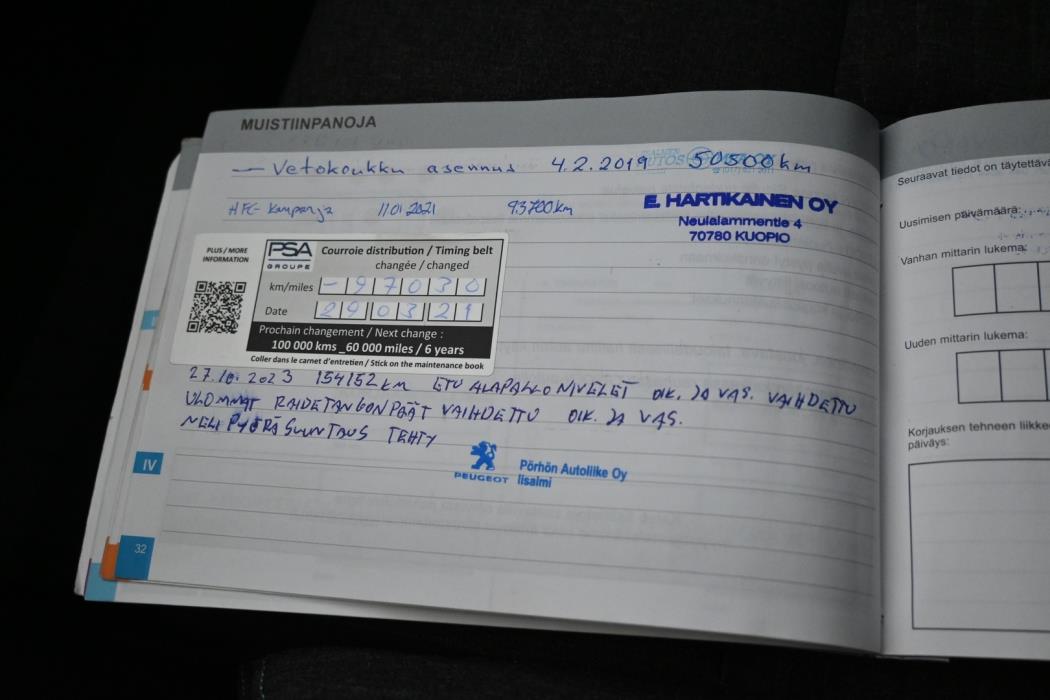 MUISTIINPANOJA
— Vetokoukku asennus 4.2.2019 50500km
HFC-Kampanja 11.01.2021 93700km
E. HARTIKAINEN OY
Neulalammentie 4
70780 KUOPIO
PLUS / MORE
INFORMATION
PSA
GROUPE
Courroie distribution / Timing belt
changée / changed
km/miles - 97030
Date 290321
Prochain changement / Next change :
100 000 kms _60 000 miles / 6 years
Coller dans le carnet d'entretien / Stick on the maintenance book
27.10.2023 154152KM ETU ALAPALLONIVELET OIK. JA VAS. VAIHDETTU
ULOMMAT RAIDETANGONPÄÄT VAIHDETTU OIK. JA VAS.
NELIPYÖRÄSUUNTAUS TEHTY
PEUGEOT
Pörhön Autoliike Oy
Iisalmi
IV
32
Seuraavat tiedot on täytettävä
Uusimisen päivämäärä:
Vanhan mittarin lukema:
Uuden mittarin lukema:
Korjauksen tehneen liikke
päiväys: